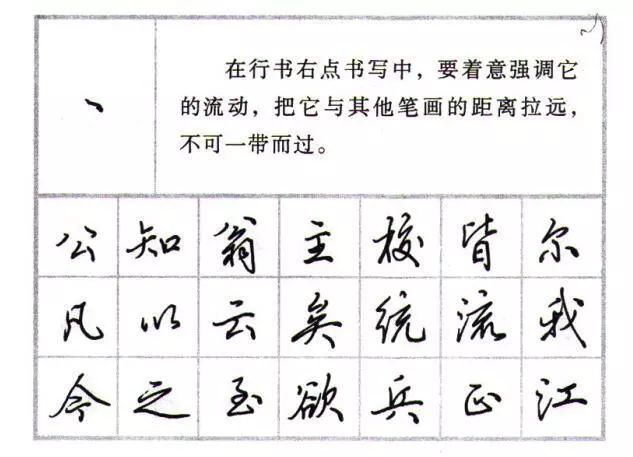 丶
在行书右点书写中，要着意强调它
的流动，把它与其他笔画的距离拉远，
不可一带而过。
公 知 翁 主 校 皆 尔
凡 以 云 矣 统 流 我
今 之 至 欲 兵 正 江